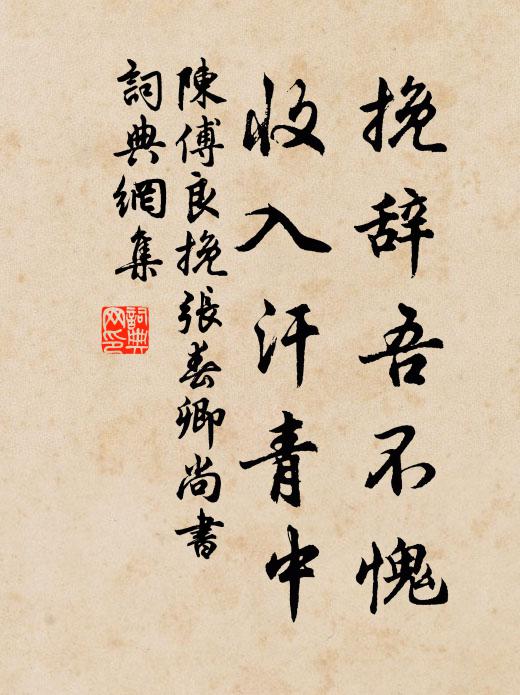 挽辞吾不愧
收入汗青中
陳傅良挽張春卿尚書
詞典網集
詞典網印